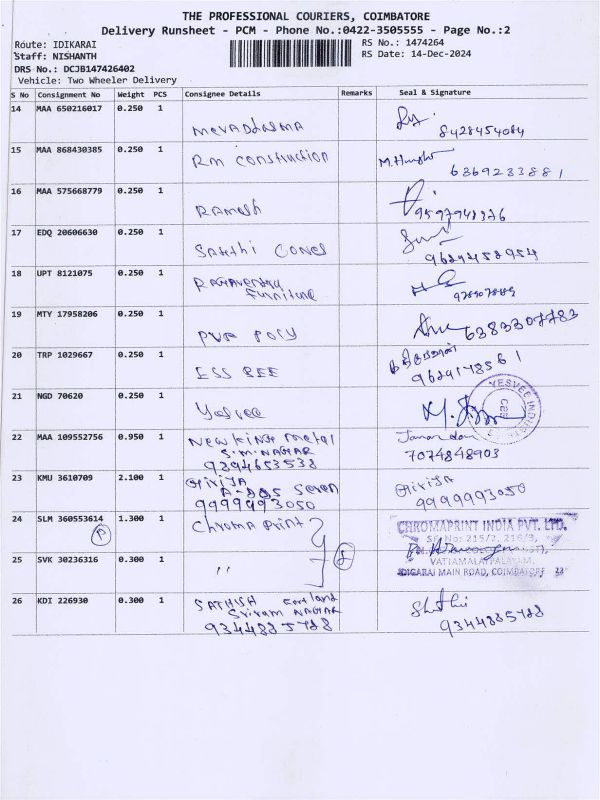 THE PROFESSIONAL COURIERS, COIMBATORE
Delivery Runsheet - PCM - Phone No.:0422-3505555 - Page No.:2
Route: IDIKARAI
RS No.: 1474264
Staff: NISHANTH
RS Date: 14-Dec-2024
DRS No.: DCJB147426402
Vehicle: Two Wheeler Delivery
S No Consignment No Weight PCS Consignee Details Remarks Seal & Signature
14 MAA 650216017 0.250 1
8428454084
15 MAA 868430385 0.250 1 RM construction
6369233881
16 MAA 575668779 0.250 1 RAMesh
9597948376
17 EDQ 20606630 0.250 1 SAKthi CONES
18 UPT 8121075 0.250 1 RAGAvendra
Furniture
19 MTY 17958206 0.250 1 PVR POLY 6383307783
20 TRP 1029667 0.250 1 ESS BEE
21 NGD 70620 0.250 1 Yesvee
YESVEE INDUSTRIES
CBE
22 MAA 109552756 0.950 1 New King metal
S.M. NAGAR
9294653538
Janardan
7074848903
23 KMU 3610709 2.100 1 GIRIJA
A-205 Seven
9999993050
GIRIJA
9999993050
24 SLM 360553614 1.300 1 Chroma Print
CHROMAPRINT INDIA PVT. LTD.
SF No: 215/2, 216/3,
VATTAMALAIPALAYAM,
IDIGARAI MAIN ROAD, COIMBATORE
25 SVK 30236316 0.300 1 "
26 KDI 226930 0.300 1 SATHISH
Sriram NAGAR
9344885788
9344885788